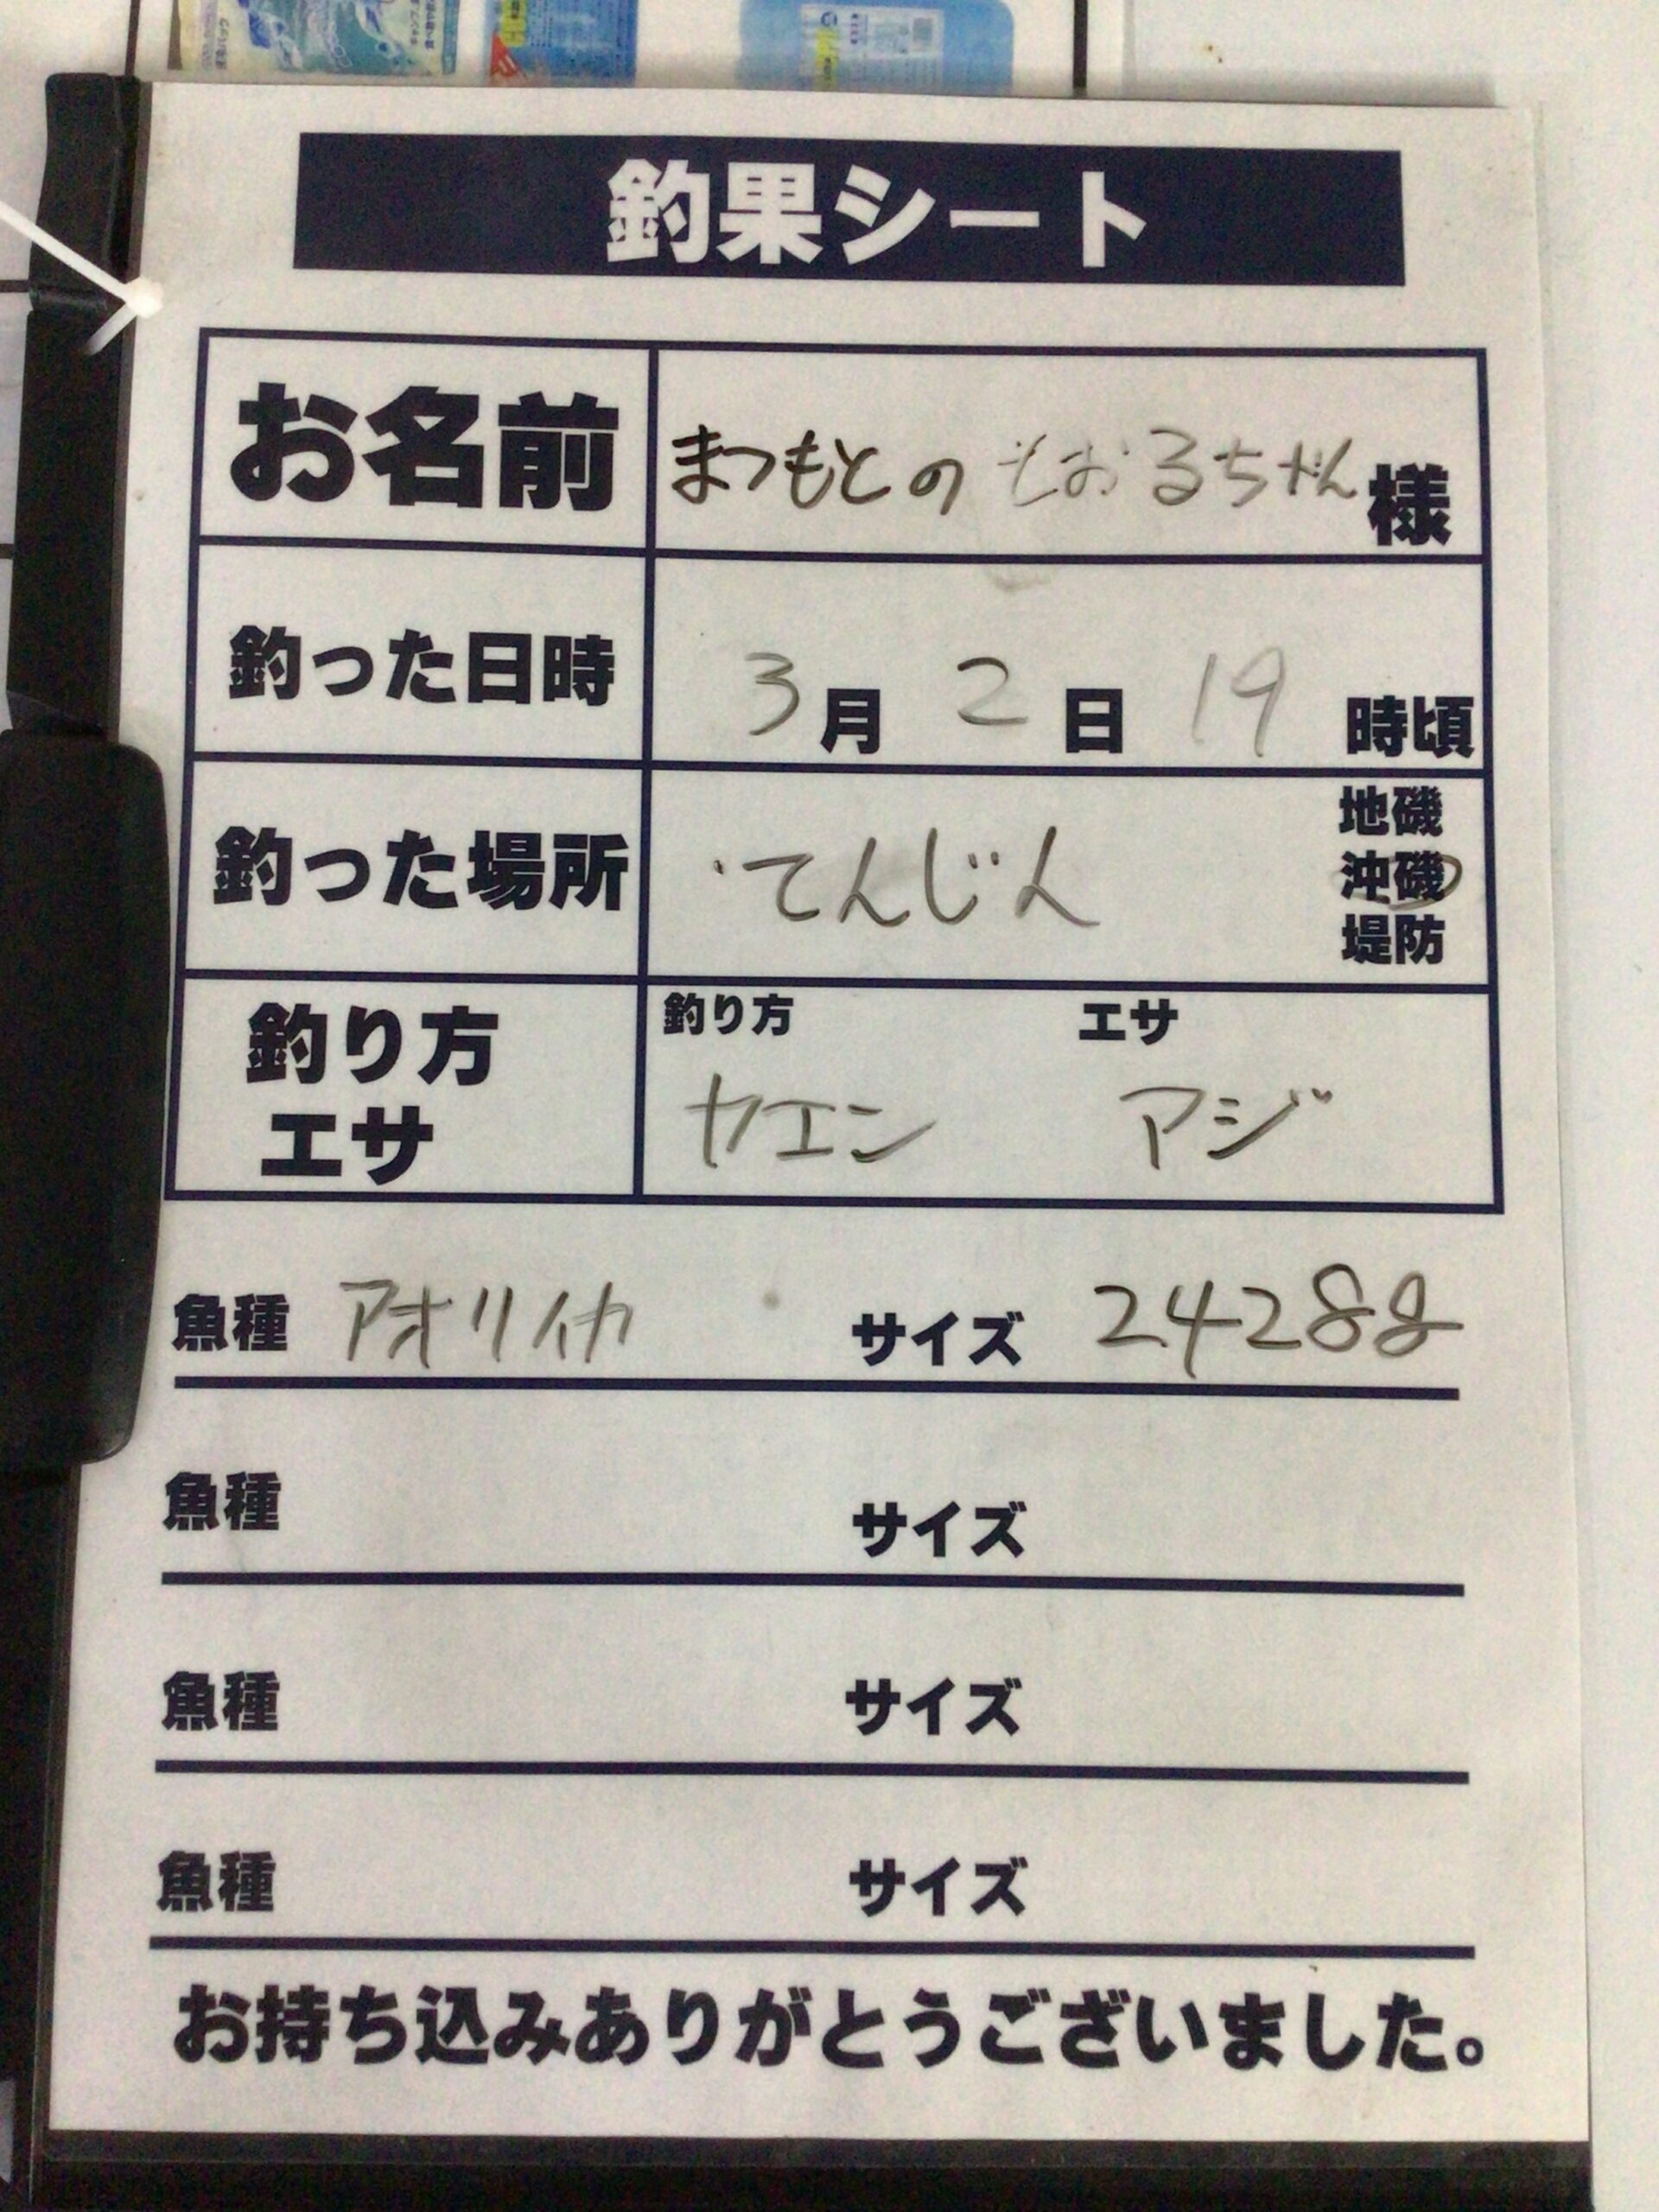 釣果シート
お名前 まつもとの とおるちゃん 様
釣った日時 3月 2日 19時頃
釣った場所 てんじん 地磯
沖磯
堤防
釣り方 エサ
釣り方
エサ
ヤエン アジ
魚種 アオリイカ サイズ 2428g
魚種 サイズ
魚種 サイズ
魚種 サイズ
お持ち込みありがとうございました。